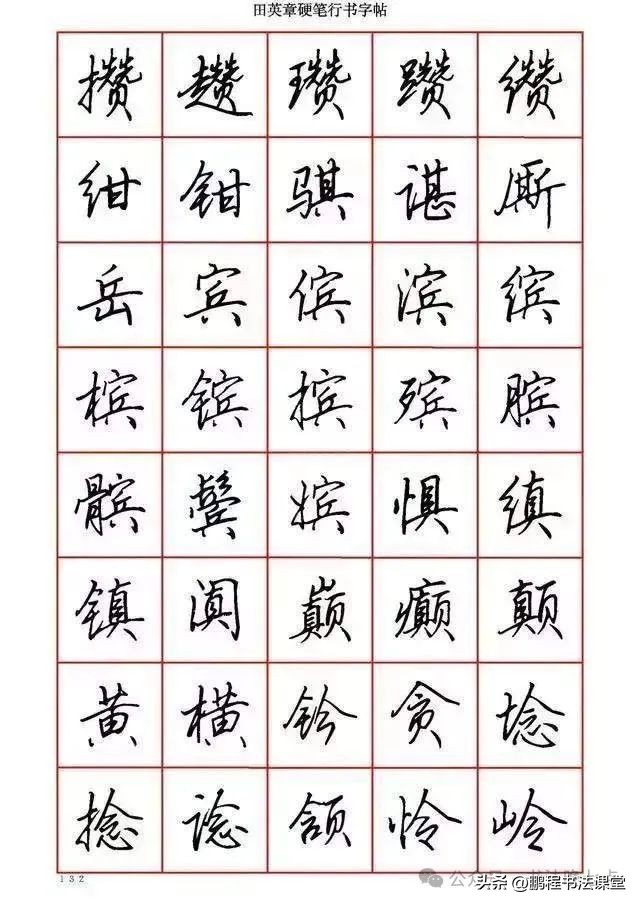 田英章硬笔行书字帖
攒 趱 瓒 躜 缵
绀 钳 骐 谌 厮
岳 宾 傧 滨 缤
槟 镔 摈 殡 膑
髌 鬓 嫔 惧 缜
镇 阗 巅 癫 颠
黄 横 钤 贪 埝
捻 谂 颔 怜 岭
132
头条 @鹏程书法课堂